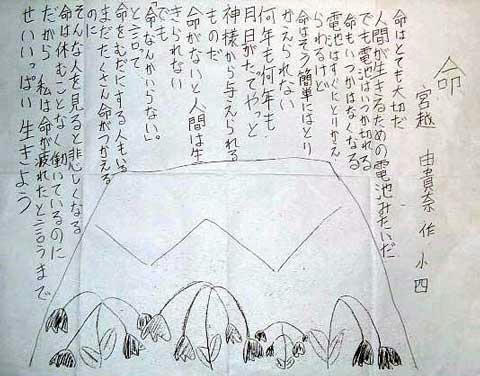 命
宮越 由貴奈 作 小四
命はとても大切だ
人間が生きるための電池みたいだ
でも電池はいつか切れる
命もいつかはなくなる
電池はすぐにとりかえ
られるけど
命はそう簡単にはとり
かえられない
何年も何年も
月日がたってやっと
神様から与えられる
ものだ
命がないと人間は生
きられない
でも
「命なんかいらない。」
と言って
命をむだにする人もいる
まだたくさん命がつかえる
のに
そんな人を見ると悲しくなる
命は休むことなく働いているのに
だから 私は命が疲れたと言うまで
せいいっぱい生きよう